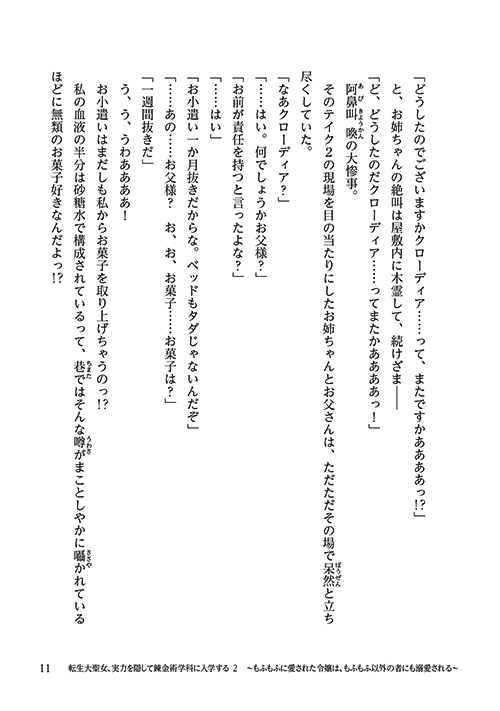 「どうしたのでございますかクローディア……って、またですかああああっ!?」
と、お姉ちゃんの絶叫は屋敷内に木霊して、続けざま――
「ど、どうしたのだクローディア……ってまたかああああっ!」
阿鼻叫喚の大惨事。
そのテイク2の現場を目の当たりにしたお姉ちゃんとお父さんは、ただただその場で呆然と立ち
尽くしていた。
「なあクローディア?」
「……はい。何でしょうかお父様?」
「お前が責任を持つと言ったよな?」
「……はい」
「お小遣い一か月抜きだからな。ベッドもタダじゃないんだぞ」
「……あの……お父様? お、お、お菓子……お菓子は?」
「一週間抜きだ」
う、う、うわああああ!
お小遣いはまだしも私からお菓子を取り上げちゃうのっ!?
私の血液の半分は砂糖水で構成されているって、巷ではそんな噂がまことしやかに囁かれている
ほどに無類のお菓子好きなんだよっ!?
11 転生大聖女、実力を隠して錬金術学科に入学する 2 ～もふもふに愛された令嬢は、もふもふ以外の者にも溺愛される～